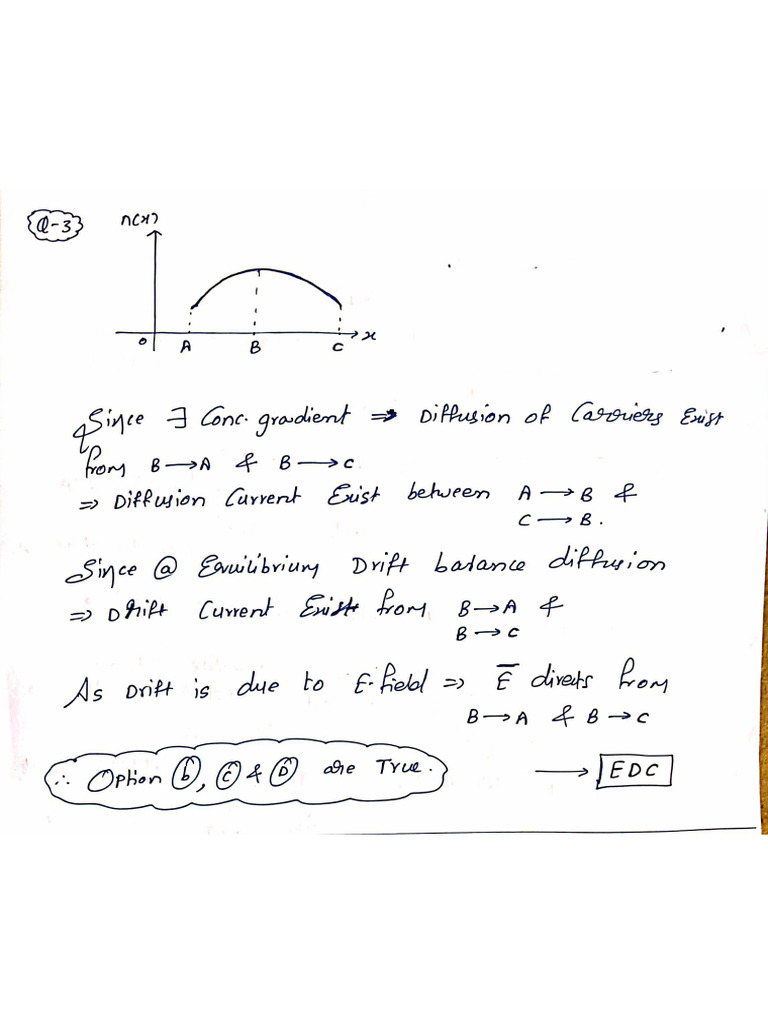 Q-3
n(x)
0 A B C x
Since ∃ Conc. gradient ⇒ Diffusion of Carriers Exist
from B→A & B→C
⇒ Diffusion Current Exist between A→B &
C→B.
Since @ Equilibrium Drift balance diffusion
⇒ Drift Current Exist from B→A &
B→C
As Drift is due to E-field ⇒ E̅ directs from
B→A & B→C
∴ Option ⓑ, Ⓒ & Ⓓ are True. → EDC